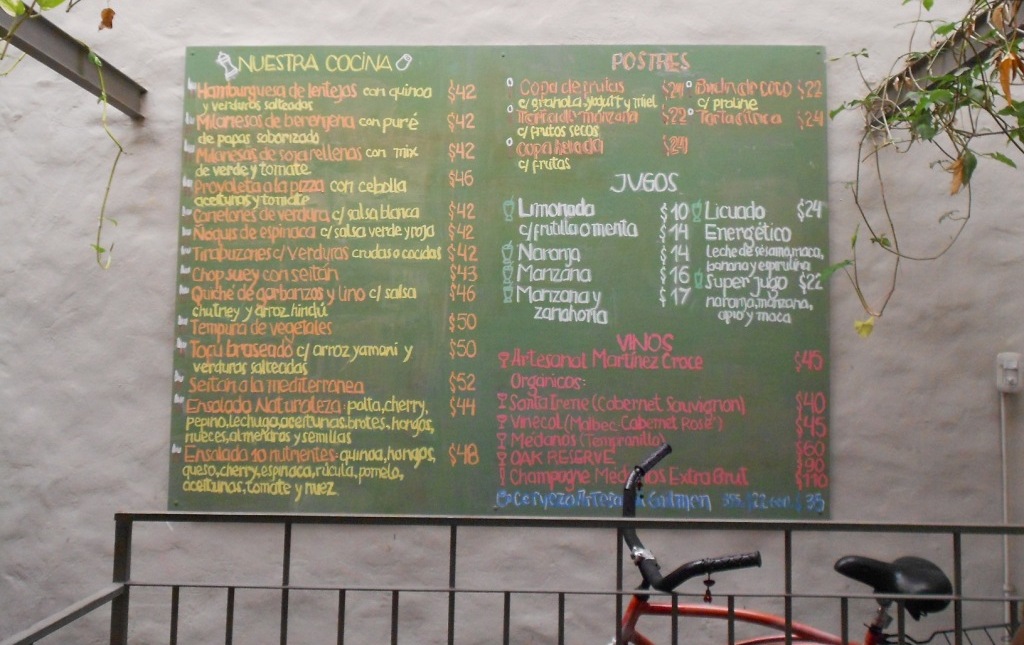 NUESTRA COCINA
Hamburguesa de lentejas con quinoa $42
y verduras salteadas
Milanesas de berenjena con puré $42
de papas saborizado
Milanesas de soja rellenas con mix $42
de verde y tomate
Provoleta a la pizza con cebolla $46
aceitunas y tomate
Canelones de verdura c/salsa blanca $42
Ñoquis de espinaca c/salsa verde y roja $42
Tirabuzones c/verduras crudas o cocidas $42
Chop suey con seitán $43
Quiché de garbanzos y lino c/ salsa $46
chutney y arroz hindú
Tempura de vegetales $50
Tofu braseado c/ arroz yamani y $50
verduras salteadas
Seitán a la mediterranea $52
Ensalada Naturaleza: palta, cherry, $44
pepino, lechuga, aceitunas, brotes, hongos,
nueces, almendras y semillas
Ensalada 10 nutrientes: quinoa, hongos, $48
queso, cherry, espinaca, rúcula, pomelo,
aceitunas, tomate y nuez.
POSTRES
Copa de frutas $24
c/granola, yogurt y miel
de manzana $22
c/frutos secos
Copa helada $24
c/ frutas
Budín de coco $22
c/ praline
Tarta cítrica $24
JUGOS
Limonada $10
c/frutilla o menta $14
Naranja $14
Manzana $16
Manzana y $17
zanahoria
Licuado $24
Energético
Leche de sésamo, maca,
banana y espirulina
Super jugo $22
naranja, manzana,
apio y maca
VINOS
Artesanal Martínez Croce $45
Orgánicos:
Santa Irene (Cabernet Sauvignon) $40
Vinecol (Malbec-Cabernet Rosé) $45
Medanos (Tempranillo) $60
OAK RESERVE $90
Champagne Medanos Extra Brut $110
Cerveza $35